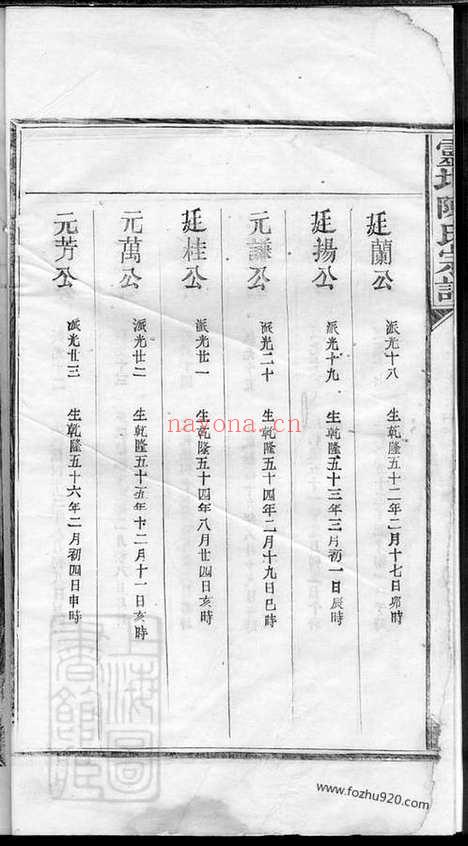 靈址陳氏宗譜
廷蘭公 派光十八 生乾隆五十二年二月十七日卯時
廷揚公 派光十九 生乾隆五十三年三月初一日辰時
元謙公 派光二十 生乾隆五十四年二月十九日巳時
廷桂公 派光廿一 生乾隆五十四年八月廿四日亥時
元萬公 派光廿二 生乾隆五十五年十二月十一日亥時
元芳公 派光廿三 生乾隆五十六年二月初四日申時
nayona.cn
上海圖書館藏
www.fozhu920.com